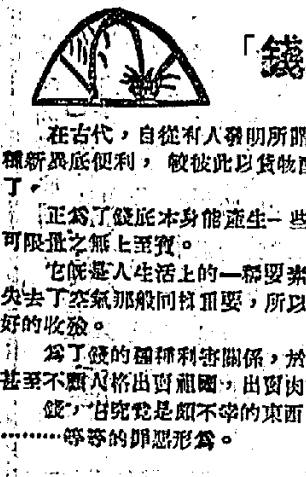 「錢
在古代,自從有人發明所謂
種新異底便利,敏彼此以貨物
了。
正為了錢底本身能產生一些
可限量之無上至寶。
它旣是人生活上的一種要素
失去了空氣那般同樣重要,所以
好的收穫。
為了錢的種種利害關係,於
甚至不顧人格出賣祖國,出賣肉
錢,它究竟是頗不幸的東西
………等等的罪惡形為。